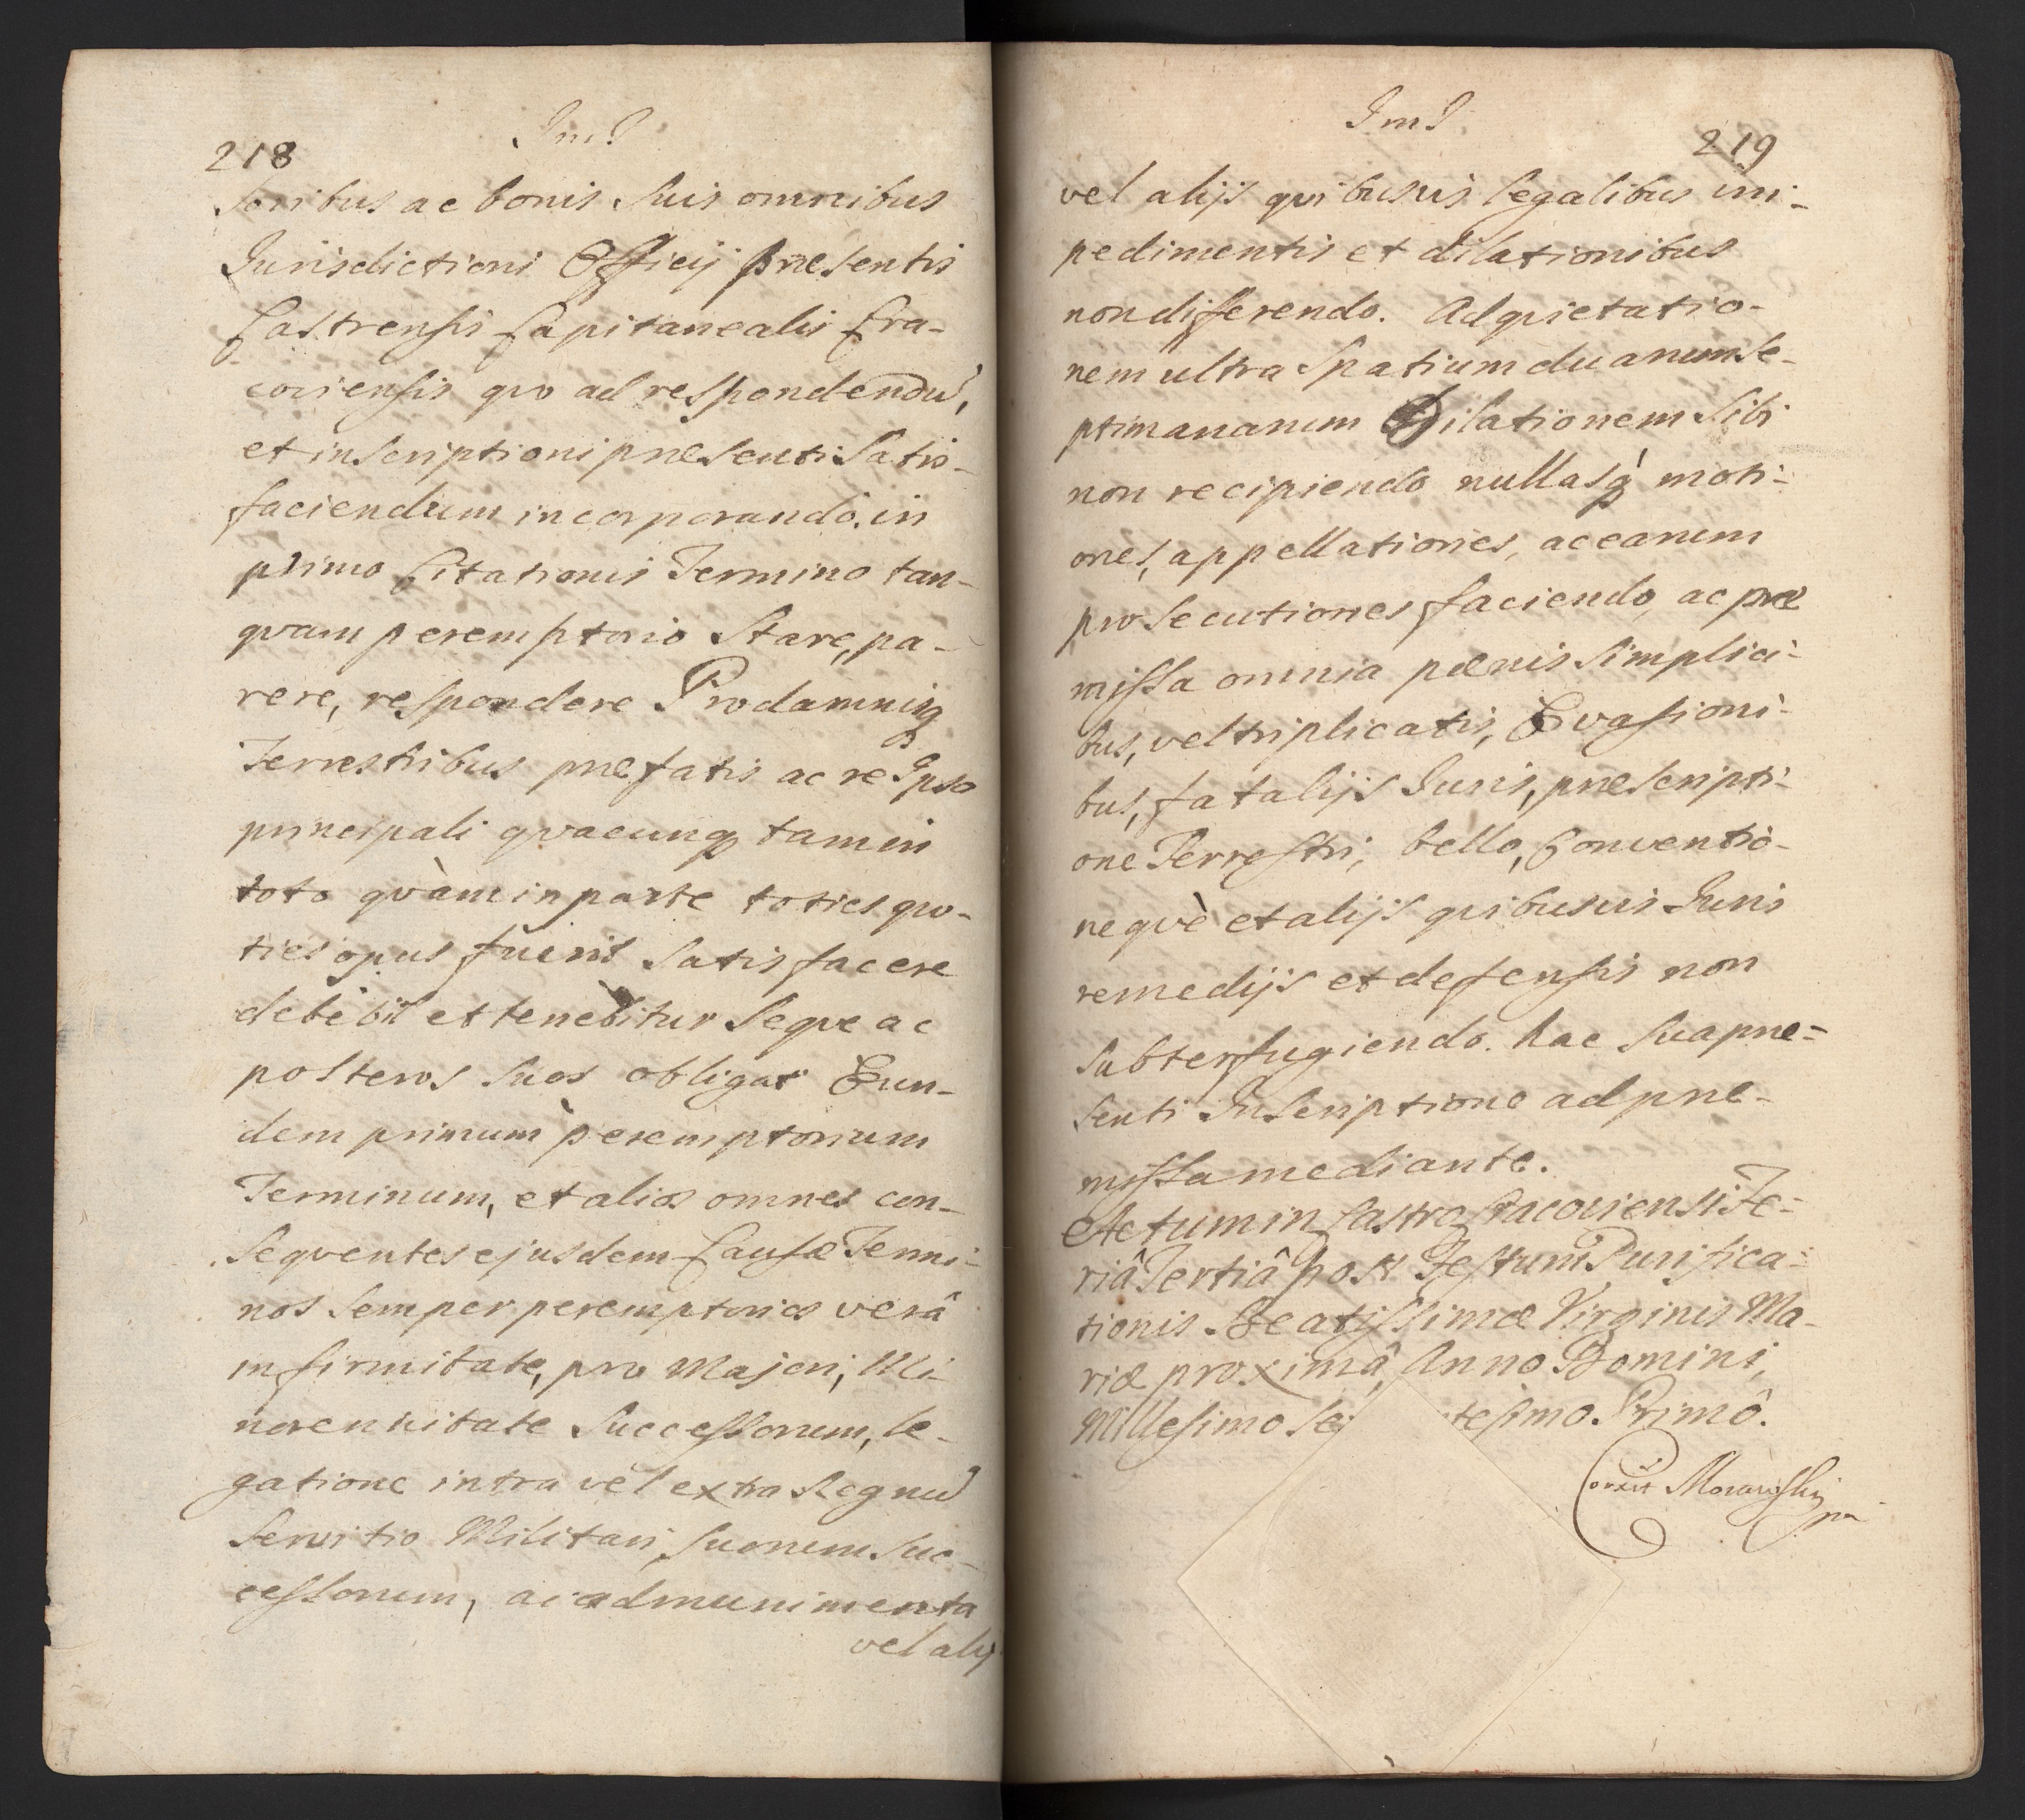 218
soribus ac bonis suis omnibus
Jurisdictioni Officij præsentis
Castrensis Capitanealis Cra-
coviensis quo ad respondendũ,
et inscriptioni præsenti Satis-
faciendum incorporando. in
primo Citationis Termino tan-
quam peremptorio Stare, pa-
rere, respondere Prodamnisq
Terrestribus præfatis ac re Ipsa
principali qvacunq tam in
toto qvàm in parte toties quo-
ties opus fuerit Satisfacere
debebit et tenebitur Seqve ac
posteros suos obligat Eun-
dem primum peremptorium
Terminum, et alios omnes con-
Seqventes ejusdem Causæ Termi-
nos Semper peremptorios verâ
infirmitate, pro Majori, Mi-
norennitate Successorum, le-
gatione intra vel extra Regnũ
Servitio Militari, Suorum Suc-
cessorum, ac admunimenta
vel alij
219
vel alijs quibusvis legalibus im-
pedimentis et dilationibus
non differendo. Ad quietatio-
nem ultra Spatium duarum Se-
ptimanarum Dilationem Sibi
non recipiendo nullasq̀ moti-
ones, appellationes, ac earum
prosecutiones faciendo, ac præ
missa omnia pœnis simplici-
bus, vel triplicatis, Evasioni-
bus, fatalijs Juris, præscripti-
one Terrestri, bello, Conventio-
neqvè et alijs quibusvis Juris
remedijs et defensis non
Subterfugiendo. hac Sua præ-
senti Inscriptione ad præ-
missa mediante.
Actum in Castro Cracoviensi Fe-
riâ Tertiâ post Festum Purifica-
tionis Beatissimæ Virginis Ma-
riæ proximâ, Anno Domini,
Millesimo Se tesimo Primô.